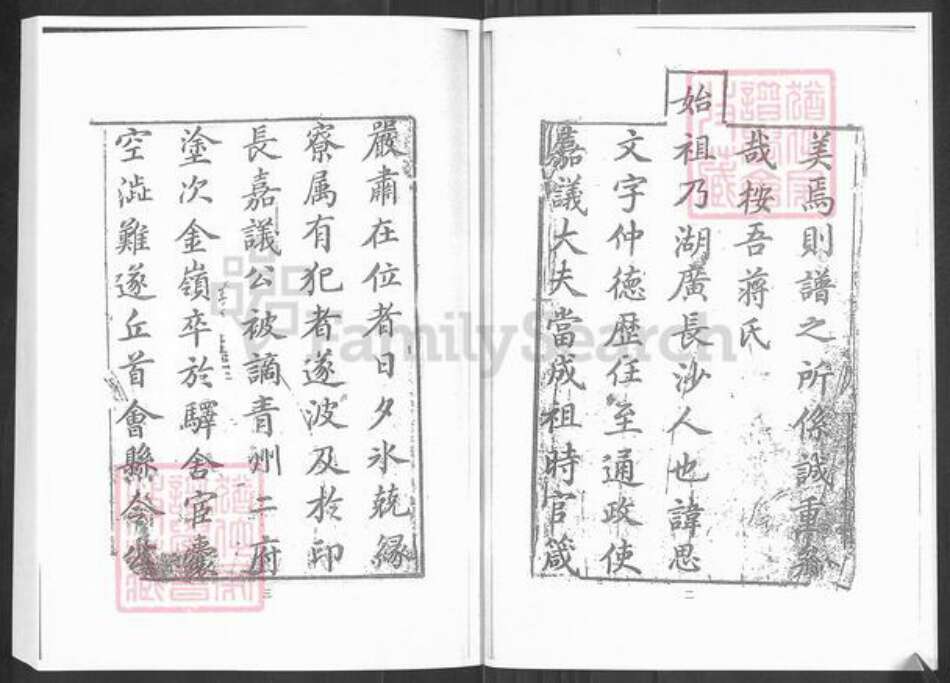 美焉則譜之所係誠重矣
哉按吾蔣氏
始祖乃湖廣長沙人也諱思
文字仲德歷任至通政使
嘉議大夫當成祖時官箴
二
嚴肅在位者日夕氷兢縁
寮属有犯者遂波及於印
長嘉議公被謫青州二府
塗次金嶺卒於驛舍宦囊
空澁難遂丘首會縣令
三
FamilySearch